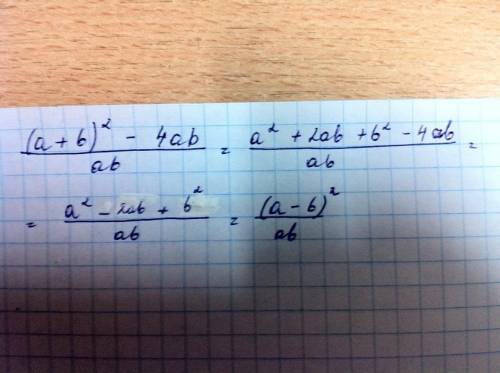 ((a + b)² - 4ab)/ab = (a² + 2ab + b² - 4ab)/ab =
= (a² - 2ab + b²)/ab = (a - b)²/ab